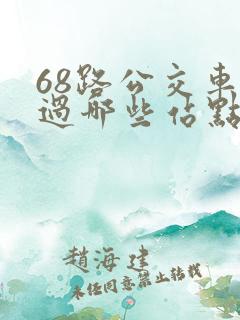 68路公交車
過哪些站點
趙海建
未经同意禁止转载